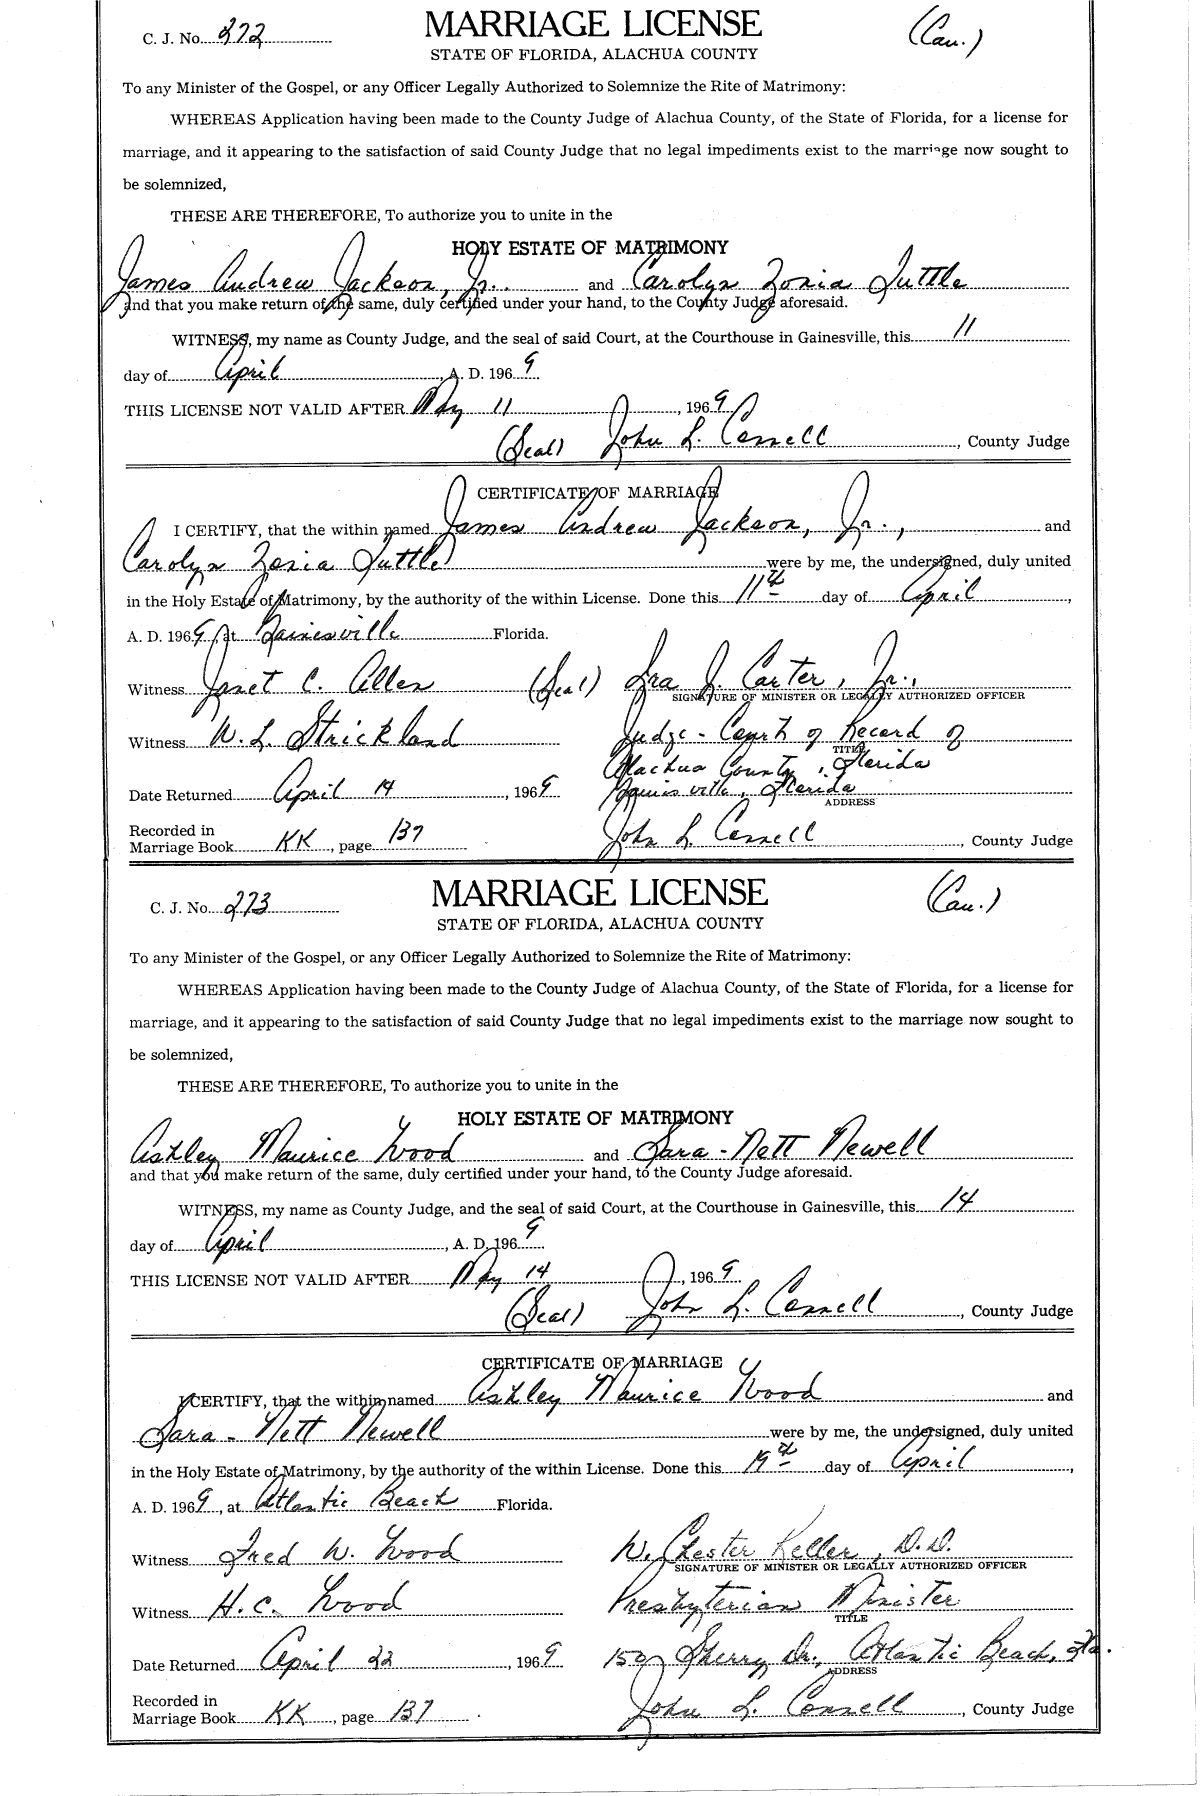 C. J. No. 272 MARRIAGE LICENSE (Cau.)
STATE OF FLORIDA, ALACHUA COUNTY
To any Minister of the Gospel, or any Officer Legally Authorized to Solemnize the Rite of Matrimony:
WHEREAS Application having been made to the County Judge of Alachua County, of the State of Florida, for a license for
marriage, and it appearing to the satisfaction of said County Judge that no legal impediments exist to the marriage now sought to
be solemnized,
THESE ARE THEREFORE, To authorize you to unite in the
HOLY ESTATE OF MATRIMONY
James Andrew Jackson, Jr. and Carolyn Zonia Tuttle
and that you make return of the same, duly certified under your hand, to the County Judge aforesaid.
WITNESS, my name as County Judge, and the seal of said Court, at the Courthouse in Gainesville, this 11
day of April, A. D. 1969
THIS LICENSE NOT VALID AFTER May 11, 1969
(Seal) John L. Connell, County Judge
CERTIFICATE OF MARRIAGE
I CERTIFY, that the within named James Andrew Jackson, Jr., and
Carolyn Zonia Tuttle were by me, the undersigned, duly united
in the Holy Estate of Matrimony, by the authority of the within License. Done this 11th day of April,
A. D. 1969, at Gainesville Florida.
Witness Janet C. Allen (Seal) Ira J. Carter, Jr.,
SIGNATURE OF MINISTER OR LEGALLY AUTHORIZED OFFICER
Witness W. L. Strickland Judge - Court of Record of
TITLE
Alachua County, Florida
Date Returned April 14, 1969 Gainesville, Florida
ADDRESS
Recorded in
Marriage Book KK, page 137 John L. Connell, County Judge
C. J. No. 273 MARRIAGE LICENSE (Cau.)
STATE OF FLORIDA, ALACHUA COUNTY
To any Minister of the Gospel, or any Officer Legally Authorized to Solemnize the Rite of Matrimony:
WHEREAS Application having been made to the County Judge of Alachua County, of the State of Florida, for a license for
marriage, and it appearing to the satisfaction of said County Judge that no legal impediments exist to the marriage now sought to
be solemnized,
THESE ARE THEREFORE, To authorize you to unite in the
HOLY ESTATE OF MATRIMONY
Ashley Maurice Wood and Sara-Nett Newell
and that you make return of the same, duly certified under your hand, to the County Judge aforesaid.
WITNESS, my name as County Judge, and the seal of said Court, at the Courthouse in Gainesville, this 14
day of April, A. D. 1969
THIS LICENSE NOT VALID AFTER May 14, 1969
(Seal) John L. Connell, County Judge
CERTIFICATE OF MARRIAGE
I CERTIFY, that the within named Ashley Maurice Wood and
Sara-Nett Newell were by me, the undersigned, duly united
in the Holy Estate of Matrimony, by the authority of the within License. Done this 19th day of April,
A. D. 1969, at Atlantic Beach Florida.
Witness Fred W. Wood W. Chester Keller, D.D.
SIGNATURE OF MINISTER OR LEGALLY AUTHORIZED OFFICER
Witness H. C. Wood Presbyterian Minister
TITLE
Date Returned April 22, 1969 Sherry Dr., Atlantic Beach, Fla.
ADDRESS
Recorded in
Marriage Book KK, page 137 John L. Connell, County Judge